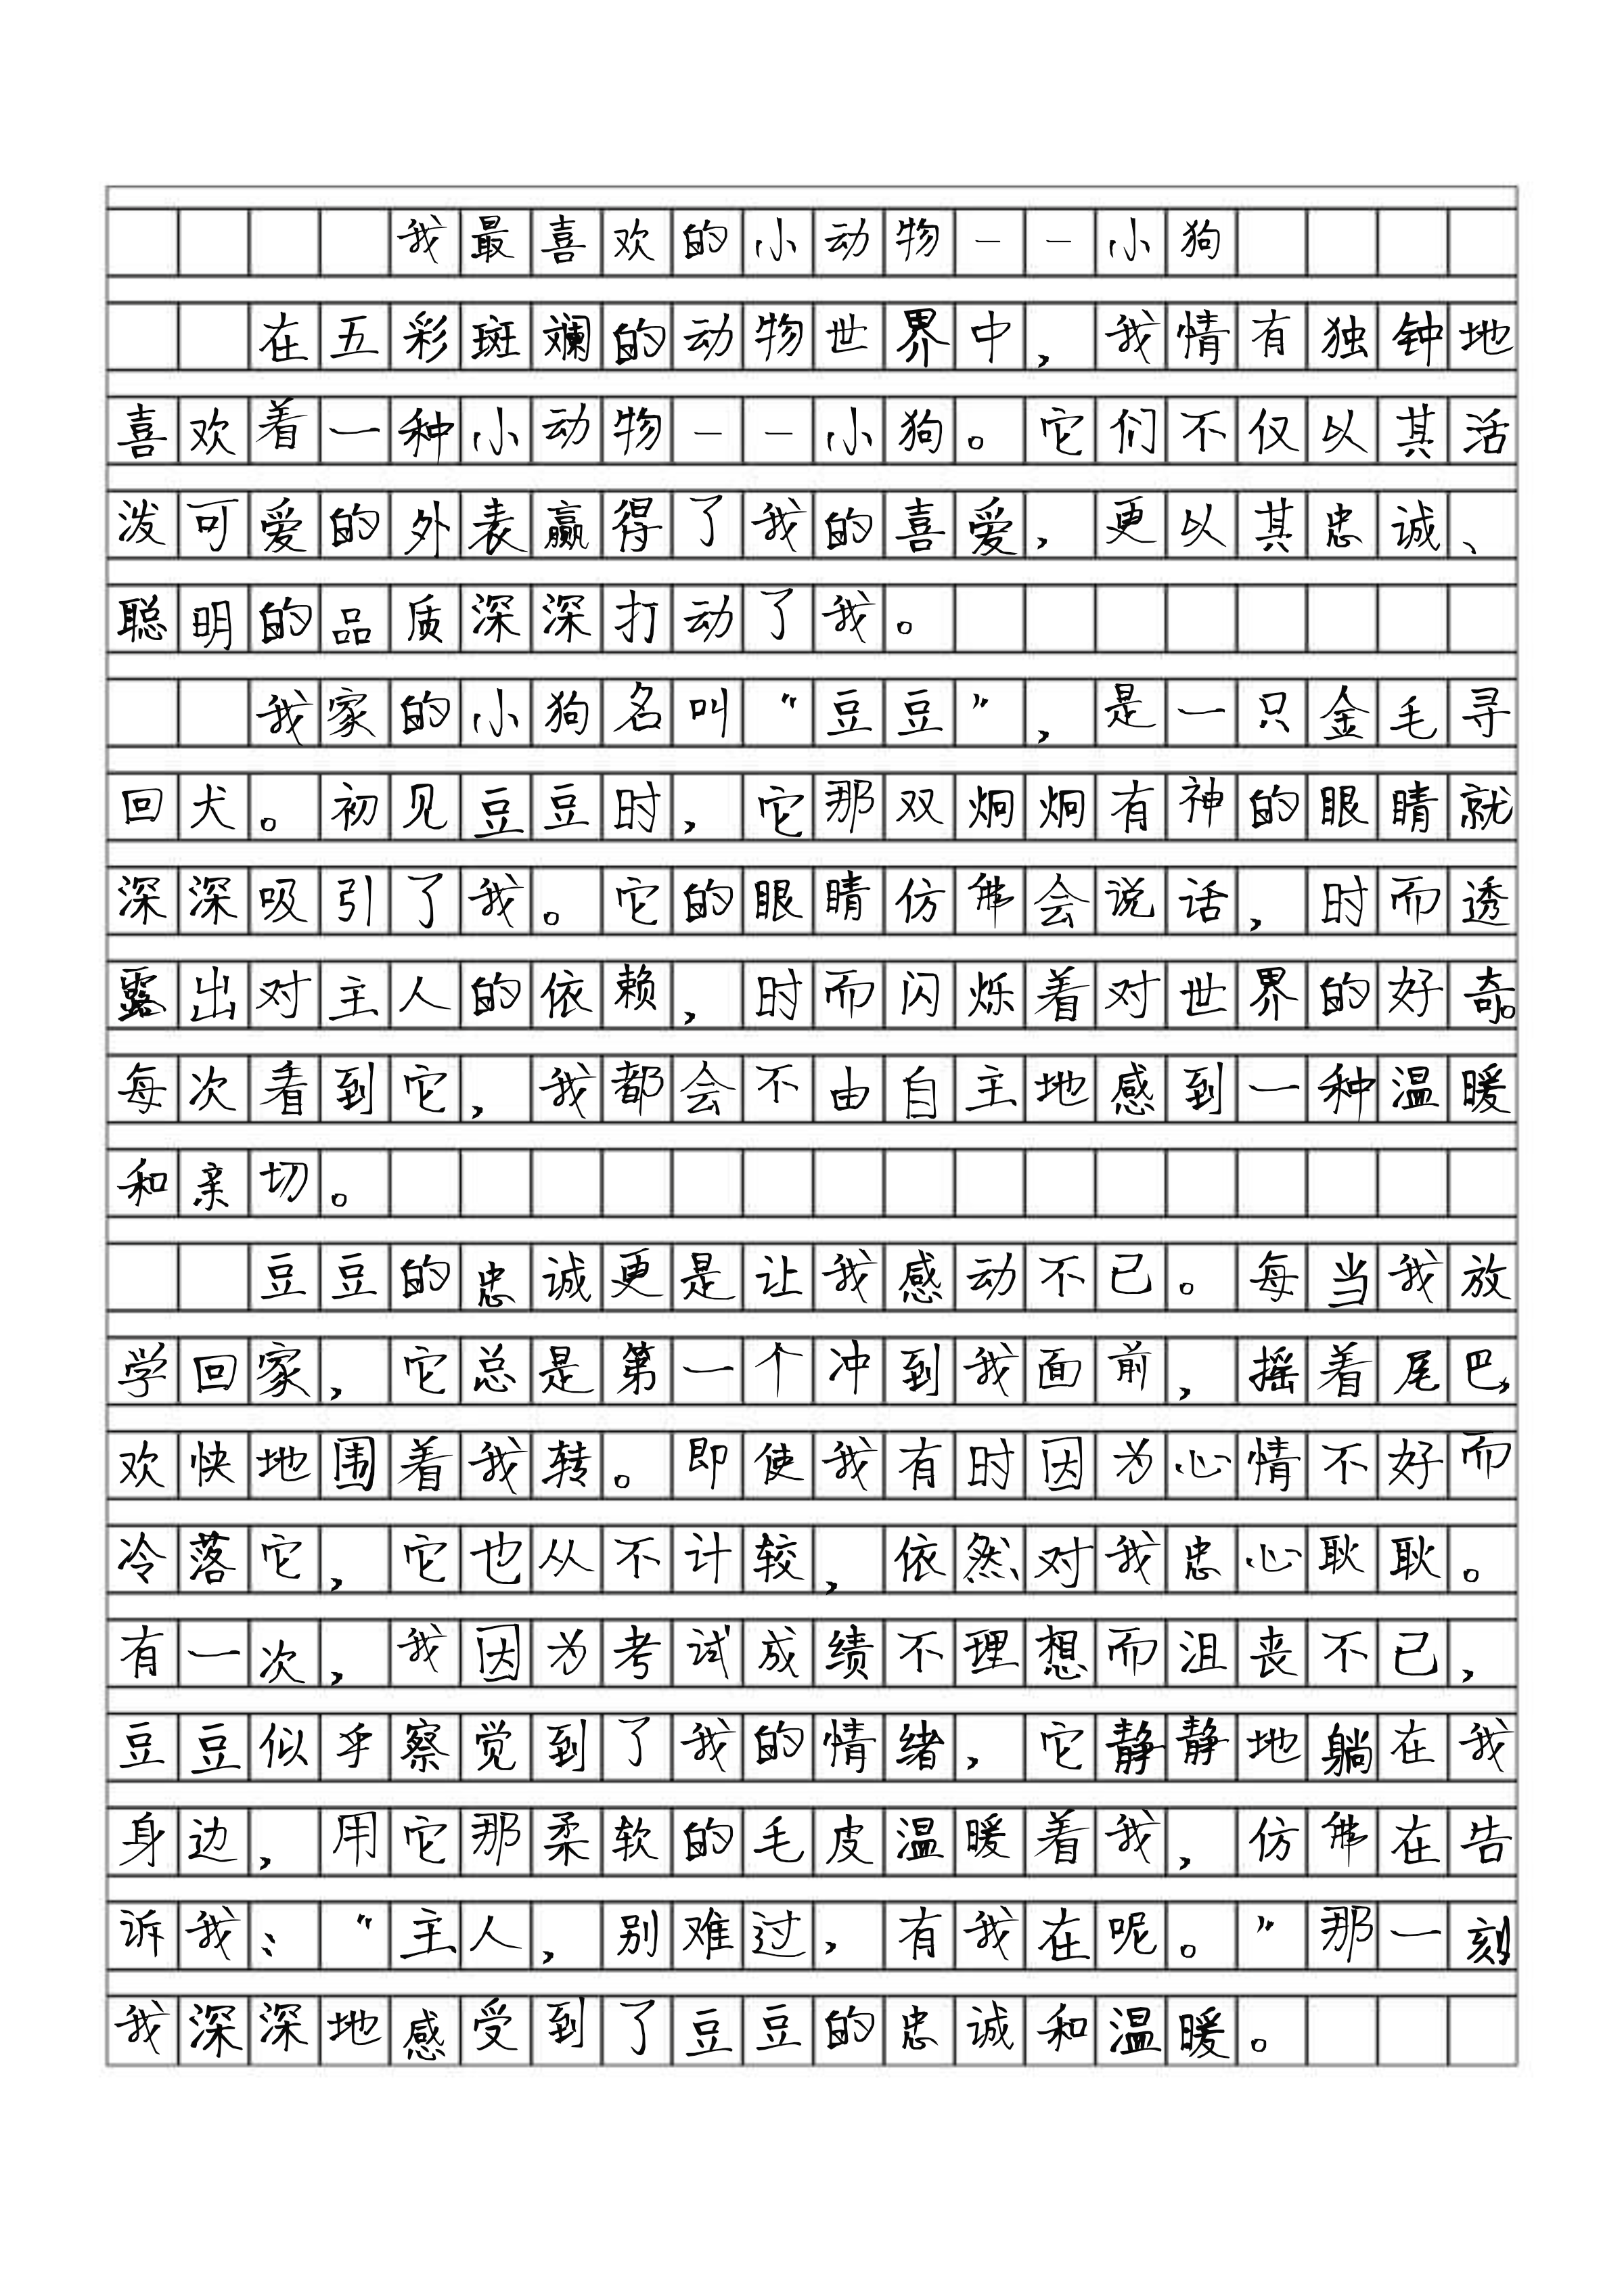 我最喜欢的小动物--小狗
在五彩斑斓的动物世界中，我情有独钟地
喜欢着一种小动物--小狗。它们不仅以其活
泼可爱的外表赢得了我的喜爱，更以其忠诚、
聪明的品质深深打动了我。
我家的小狗名叫“豆豆”，是一只金毛寻
回犬。初见豆豆时，它那双炯炯有神的眼睛就
深深吸引了我。它的眼睛仿佛会说话，时而透
露出对主人的依赖，时而闪烁着对世界的好奇。
每次看到它，我都会不由自主地感到一种温暖
和亲切。
豆豆的忠诚更是让我感动不已。每当我放
学回家，它总是第一个冲到我面前，摇着尾巴，
欢快地围着我转。即使我有时因为心情不好而
冷落它，它也从不计较，依然对我忠心耿耿。
有一次，我因为考试成绩不理想而沮丧不已，
豆豆似乎察觉到了我的情绪，它静静地躺在我
身边，用它那柔软的毛皮温暖着我，仿佛在告
诉我：“主人，别难过，有我在呢。”那一刻
我深深地感受到了豆豆的忠诚和温暖。